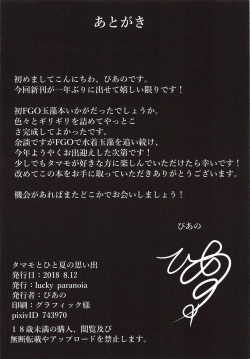 あとがき
初めましてこんにちわ、ぴあのです。
今回新刊が一年ぶりに出せて嬉しい限りです！
初FGO玉藻本いかがだったでしょうか。
色々とギリギリを詰めてやっとこ
さ完成してよかったです。
余談ですがFGOで水着玉藻を追い続け、
今年ようやくお出迎えした次第です！
少しでもタマモが好きな方に楽しんでいただけたら幸いです！
改めてこの本をお手に取っていただきありがとうございます。
機会があればまたどこかでお会いしましょう！
ぴあの
ぴあの
タマモとひと夏の思い出
発行日：2018 8.12
発行：lucky paranoia
発行者：ぴあの
印刷：グラフィック様
pixivID 743970
１８歳未満の購入、閲覧及び
無断転載やアップロードを禁止します。